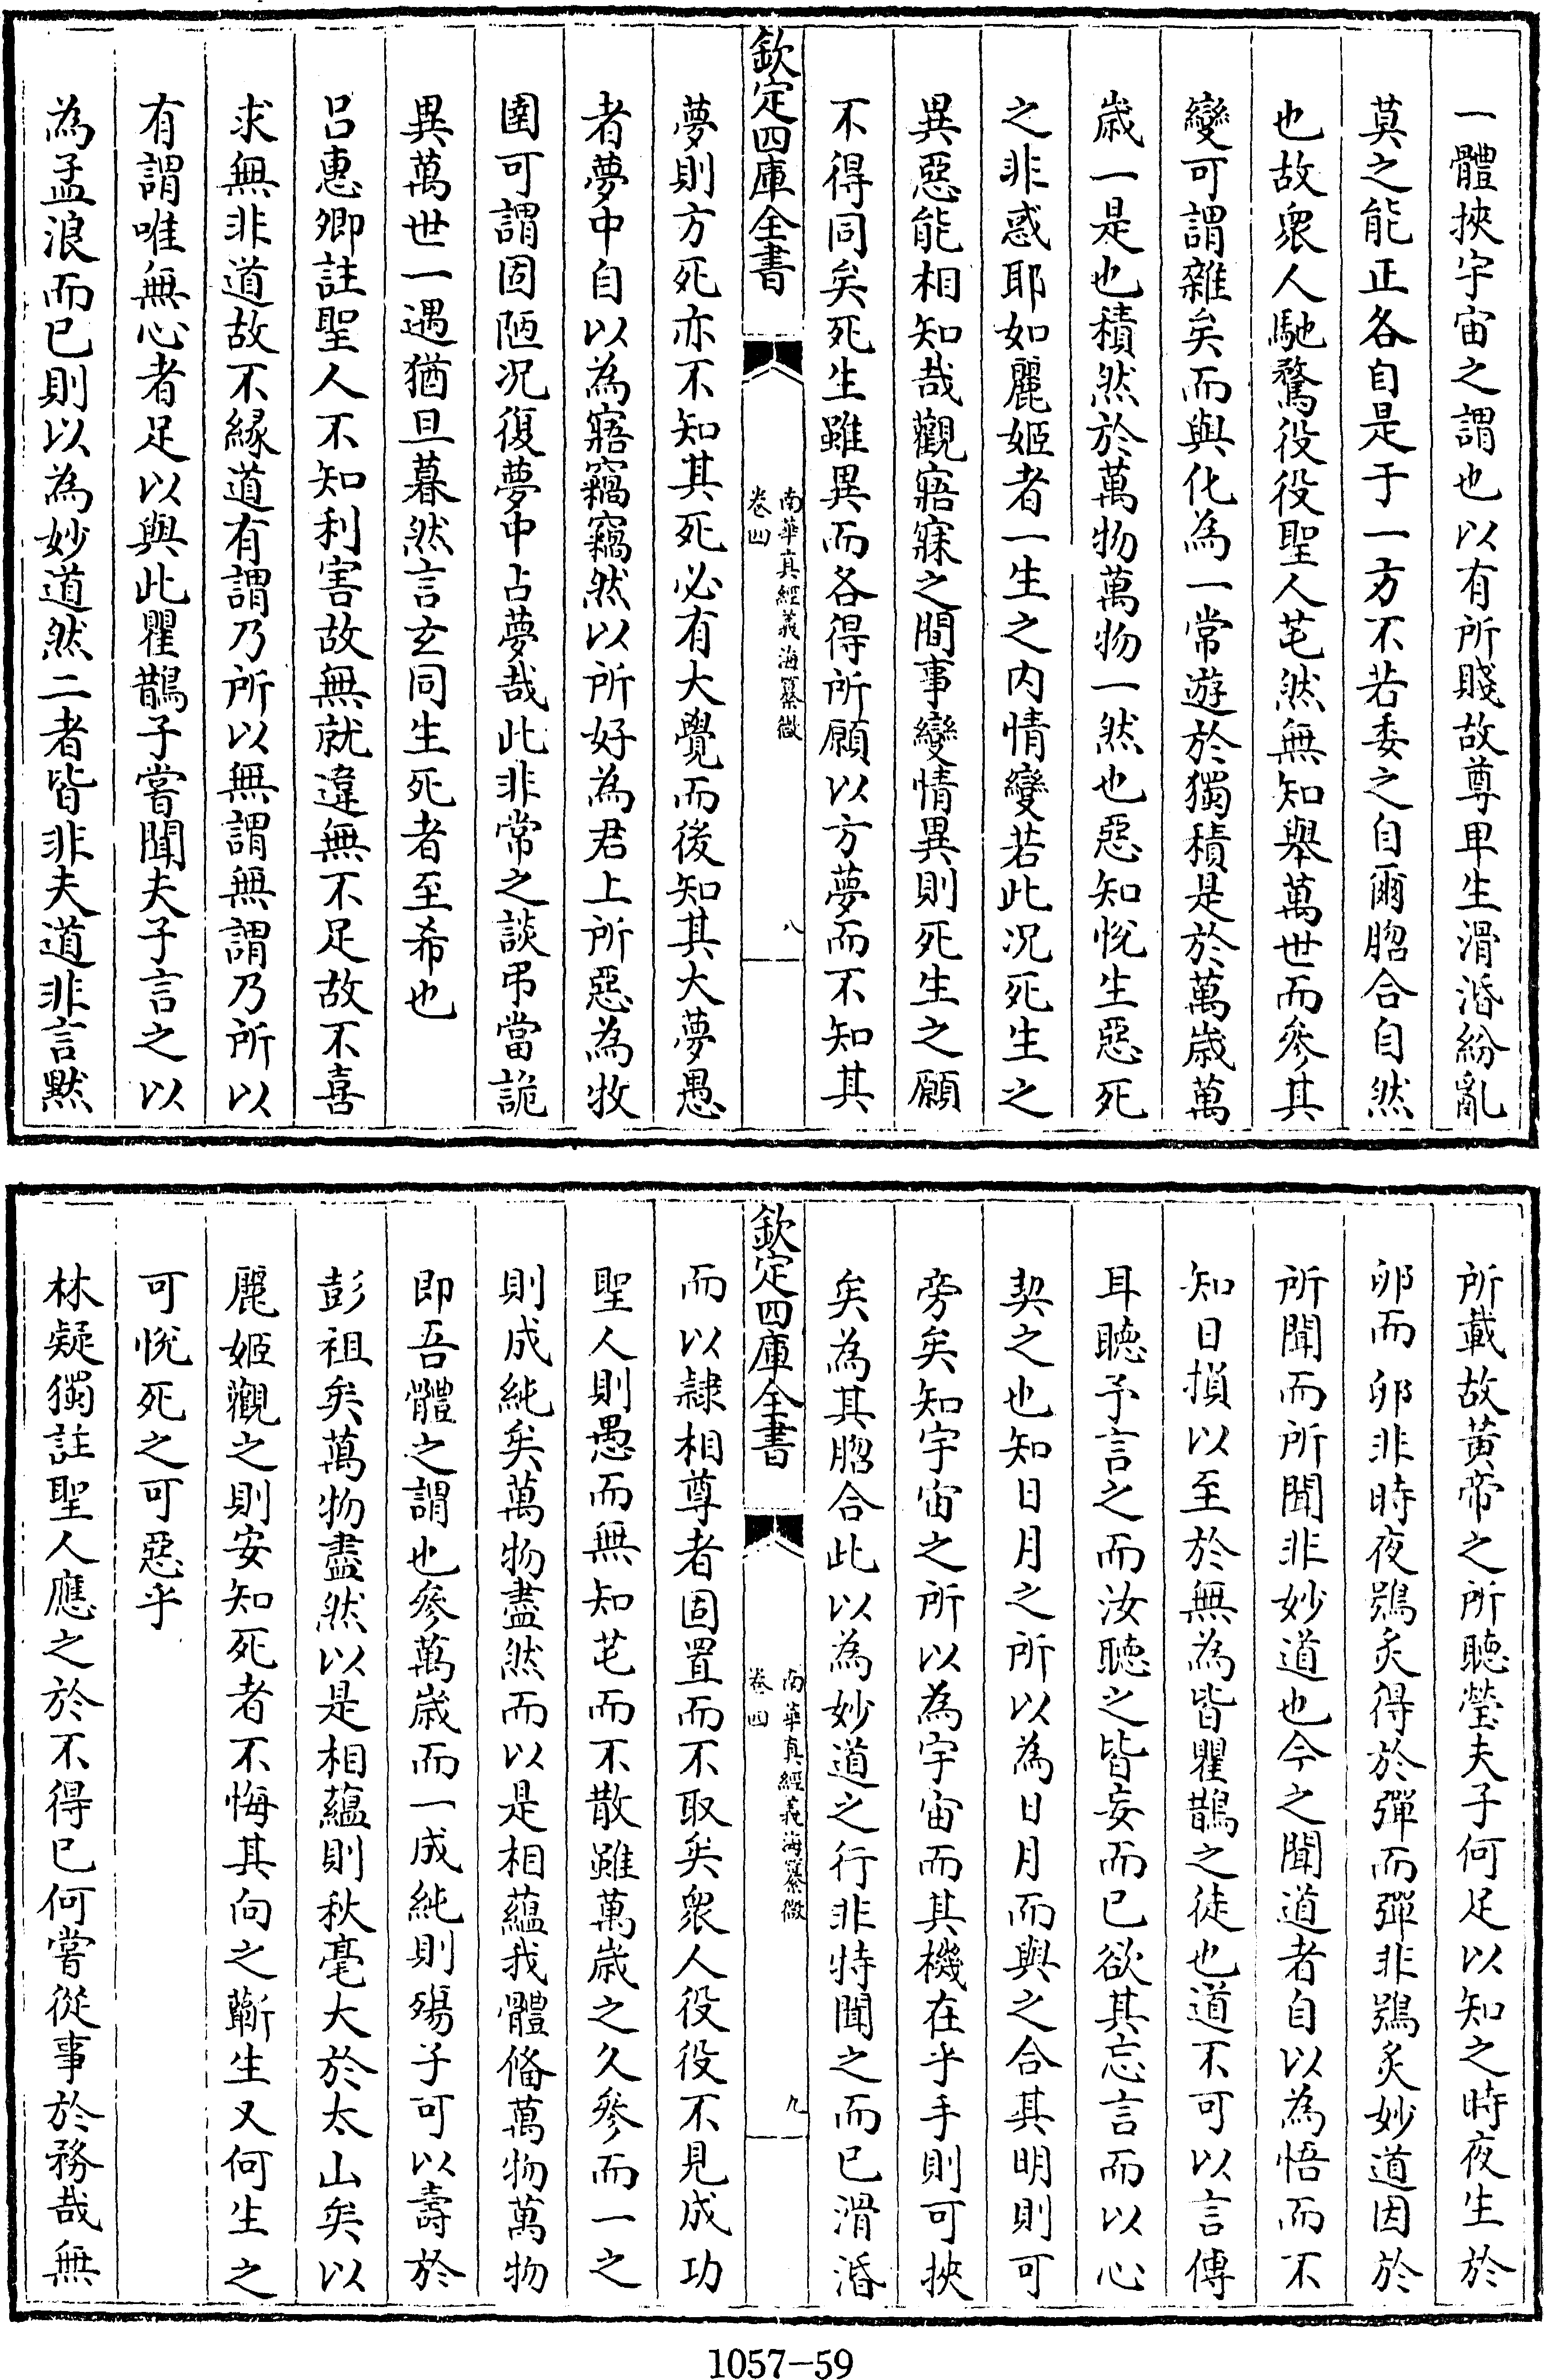 一體挾宇宙之謂也以有所賤故尊卑生滑涽紛亂
莫之能正各自是于一方不若委之自爾脗合自然
也故衆人馳騖役役聖人芚然無知舉萬世而參其
變可謂雜矣而與化為一常遊於獨積是於萬歳萬
歳一是也積然於萬物萬物一然也惡知悅生惡死
之非惑耶如麗姬者一生之内情變若此况死生之
異惡能相知哉觀寤寐之間事變情異則死生之願
不得同矣死生雖異而各得所願以方夢而不知其
欽定四庫全書
南華真經義海纂微
卷四
八
夢則方死亦不知其死必有大覺而後知其大夢愚
者夢中自以為寤竊竊然以所好為君上所惡為牧
圉可謂固陋况復夢中占夢哉此非常之談弔當詭
異萬世一遇猶旦暮然言玄同生死者至希也
吕惠卿註聖人不知利害故無就違無不足故不喜
求無非道故不緣道有謂乃所以無謂無謂乃所以
有謂唯無心者足以與此瞿鵲子嘗聞夫子言之以
為孟浪而已則以為妙道然二者皆非夫道非言黙
所載故黃帝之所聽瑩夫子何足以知之時夜生於
卵而卵非時夜鴞炙得於彈而彈非鴞炙妙道因於
所聞而所聞非妙道也今之聞道者自以為悟而不
知日損以至於無為皆瞿鵲之徒也道不可以言傳
耳聽予言之而汝聽之皆妄而已欲其忘言而以心
契之也知日月之所以為日月而與之合其明則可
旁矣知宇宙之所以為宇宙而其機在乎手則可挾
矣為其脗合此以為妙道之行非特聞之而已滑涽
欽定四庫全書
南華真經義海纂微
卷四
九
而以隷相尊者固置而不取矣衆人役役不見成功
聖人則愚而無知芚而不散雖萬歳之久參而一之
則成純矣萬物盡然而以是相蘊我體備萬物萬物
即吾體之謂也參萬歳而一成純則殤子可以壽於
彭祖矣萬物盡然以是相蘊則秋毫大於太山矣以
麗姬觀之則安知死者不悔其向之蘄生又何生之
可悅死之可惡乎
林疑獨註聖人應之於不得已何嘗從事於務哉無
1057-59